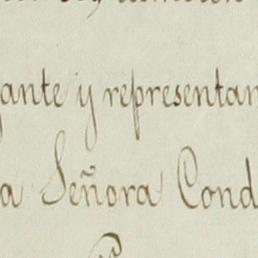 gante y representan
a Señora Cond